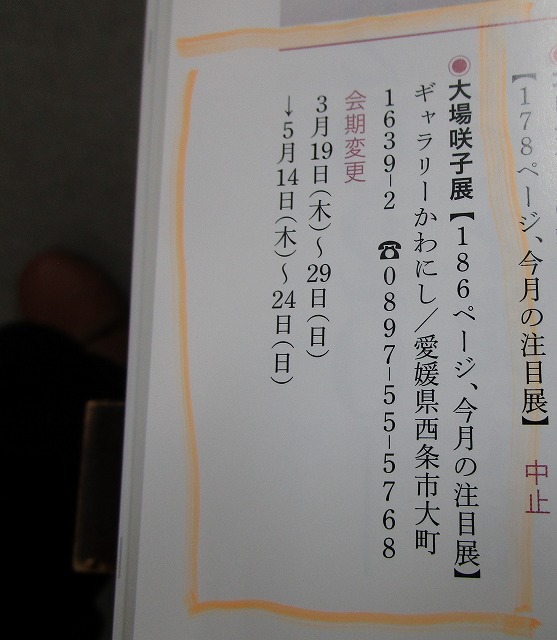 【178ページ、今月の注目展】 中止
◉大場咲子展【186ページ、今月の注目展】
ギャラリーかわにし／愛媛県西条市大町
1639-2 ☎0897-55-5768
会期変更
3月19日(木)〜29日(日)
→5月14日(木)〜24日(日)